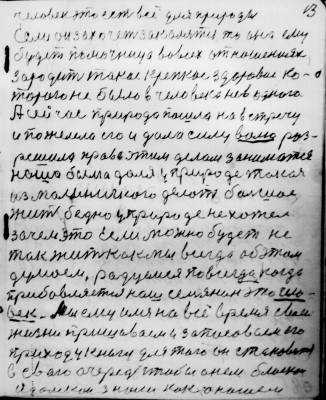 13
человек это есть всё для природы
Если он захочет закалятся то она ему
будет помочница во всех отношениях
зародит такое крепкое здоровье ко-
торого не было в человека не в одного
А сейчас природа пошла на встречу
и пожелела его и дала силу волю раз-
решила права этим делом заниматся
наша была доля у природе такая
из маленького делать большое
жит бедно у природе не хотел
зачем это Если можно будет не
так жит как мы всегда об этом
думаем, радуемся повсегда когда
прибавляется наш семянин это чило-
век. Мы ему имя на всё время своей
жизни прищиваем и записоваем его
приходу книгу для того он становит
в своего очередь чтобы о нем близко
и далеком знали как о нашей